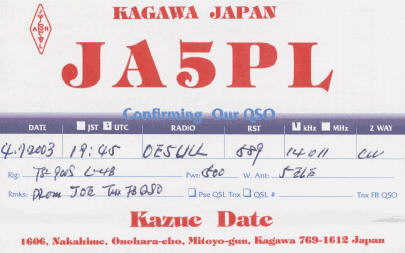 KAGAWA JAPAN
JARL
JA5PL
Confirming Our QSO
DATE JST UTC RADIO RST kHz MHz 2 WAY
19:45 OE5ULL 589 14011 CW
Rig: TS-900S L-4B Pwr: 500 W. Ant: 5ELE
Rmks: from JOE Tnx FB QSO Pse QSL Tnx QSL # Tnx FB QSO
Kazue Date
1606, Nakahime, Onohara-cho, Mitoyo-gun, Kagawa 769-1612 Japan